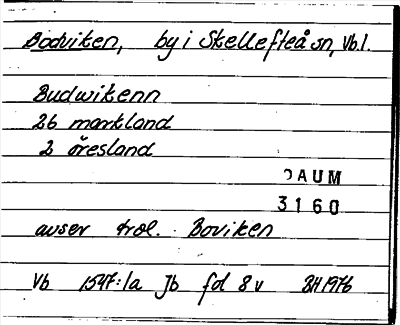 Bodviken, by i Skellefteå sn, Vb.l.
Budwikenn
26 markland
2 öresland
DAUM
3160
avser trol. Boviken
Vb 1547:1a Jb fol 8v BH1976